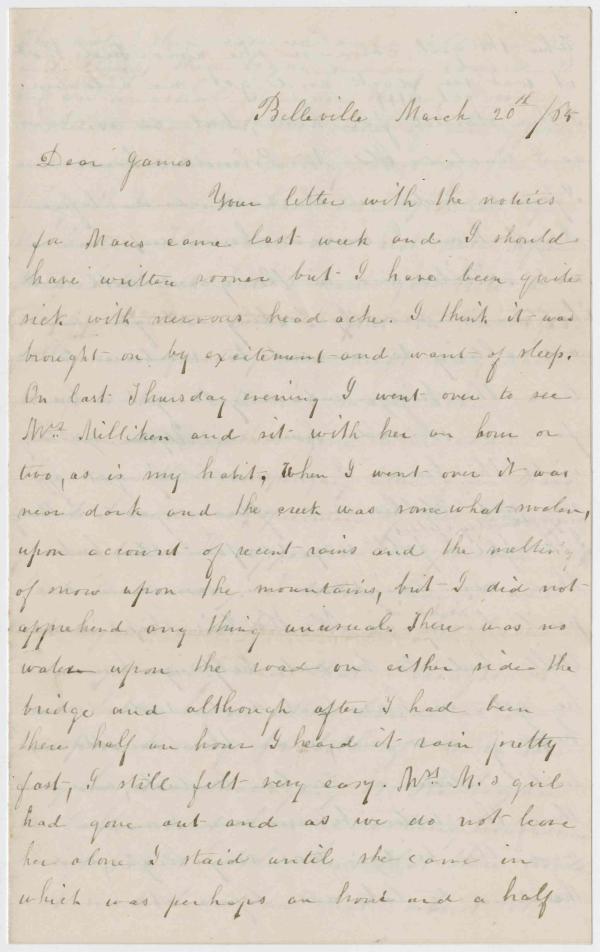 Belleville March 20th /65
Dear James
Your letter with the notices
for Maris came last week and I should
have written sooner but I have been quite
sick with nervous head ache. I think it was
brought on by excitement and want of sleep.
On last Thursday evening I went over to see
Mrs Milliken and sit with her an hour or
two, as is my habit, When I went over it was
near dark and the creek was somewhat swolen,
upon account of recent rains and the melting
of snow upon the mountains, but I did not
apprehend any thing unusual. There was no
water upon the road on either side the
bridge and although after I had been
there half an hour I heard it rain pretty
fast, I still felt very easy. Mrs M.s girl
had gone out and as we do not leave
her alone I staid until she came in
which was perhaps an hour and a half